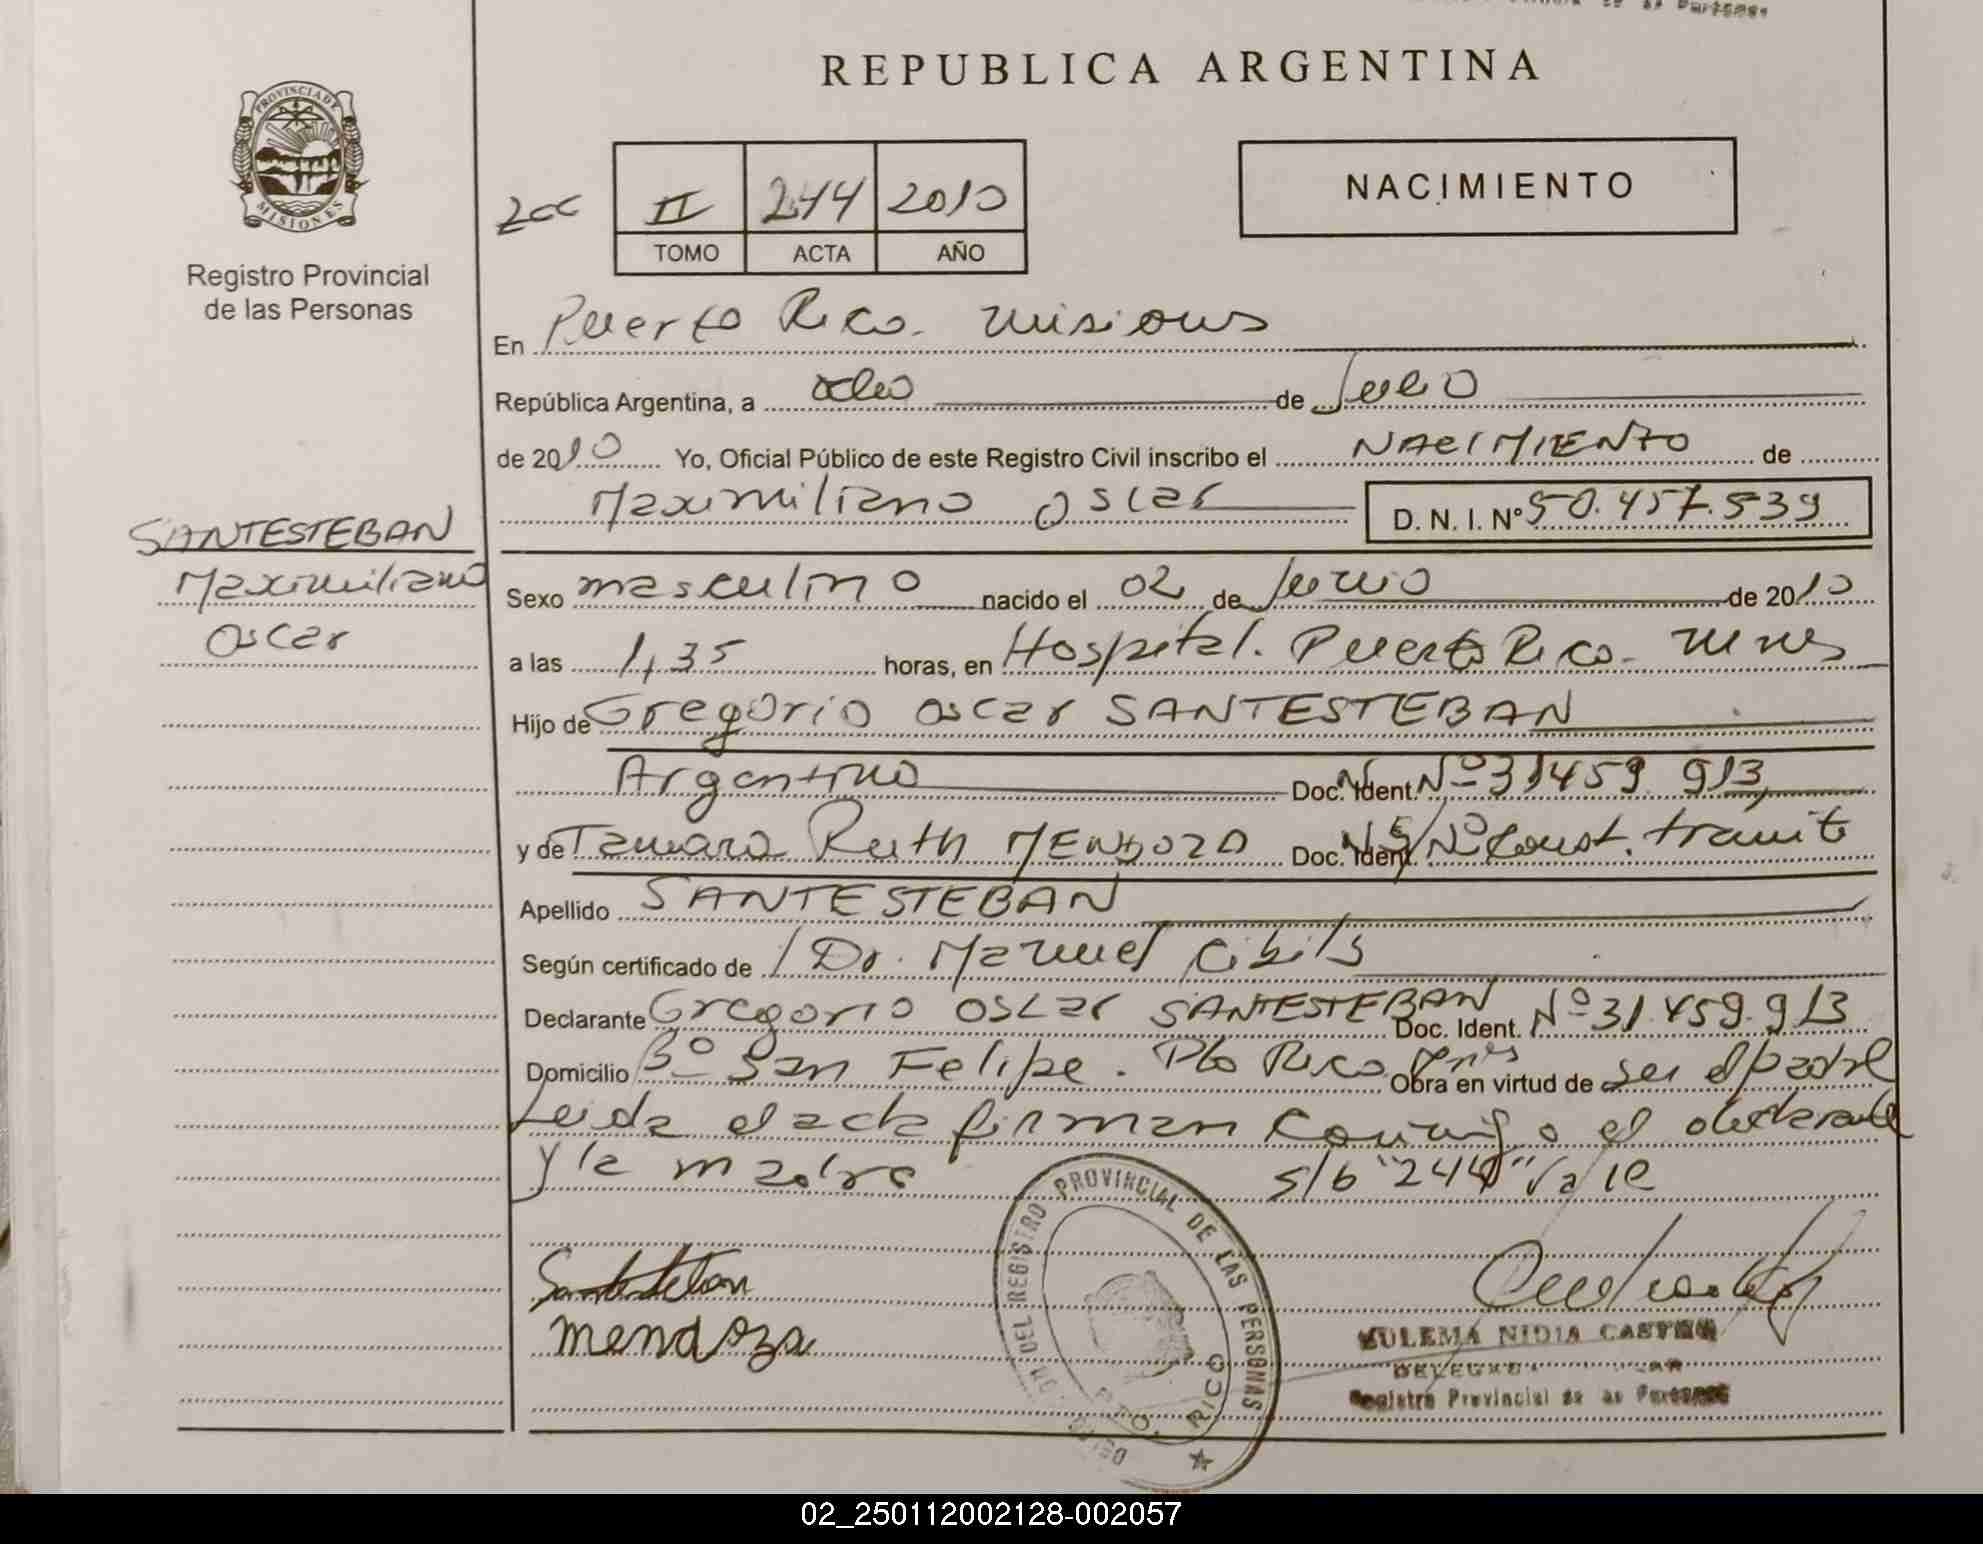 REPUBLICA ARGENTINA
PROVINCIA DE
MISIONES
Registro Provincial
de las Personas
II 244 2010
TOMO ACTA AÑO
NACIMIENTO
En Puerto Rico. Misiones
República Argentina, a ocho de Julio
de 2010 Yo, Oficial Público de este Registro Civil inscribo el NACIMIENTO de
Maximiliano Oscar D. N. I. Nº 50.457.539
SANTESTEBAN
Maximiliano
Oscar
Sexo masculino nacido el 02 de Junio de 2010
a las 1,35 horas, en Hospital. Puerto Rico. Mnes
Hijo de Gregorio Oscar SANTESTEBAN
Argentino Doc. Ident. Nº 31459 913
y de Tamara Ruth MENDOZA Doc. Ident. Nº Const. tramite
Apellido SANTESTEBAN
Según certificado de Dr. Manuel Cibils
Declarante Gregorio Oscar SANTESTEBAN Doc. Ident. Nº 31.459.913
Domicilio Bº San Felipe. Pto Rico Mnes Obra en virtud de ser el padre
Leida el acta firman conmigo el declarante
y la madre s/b "244" Vale
Santesteban
mendoza
REGISTRO PROVINCIAL DE LAS PERSONAS
PTO. RICO
ZULEMA NIDIA CASTRO
Registro Provincial de las Personas
02_250112002128-002057